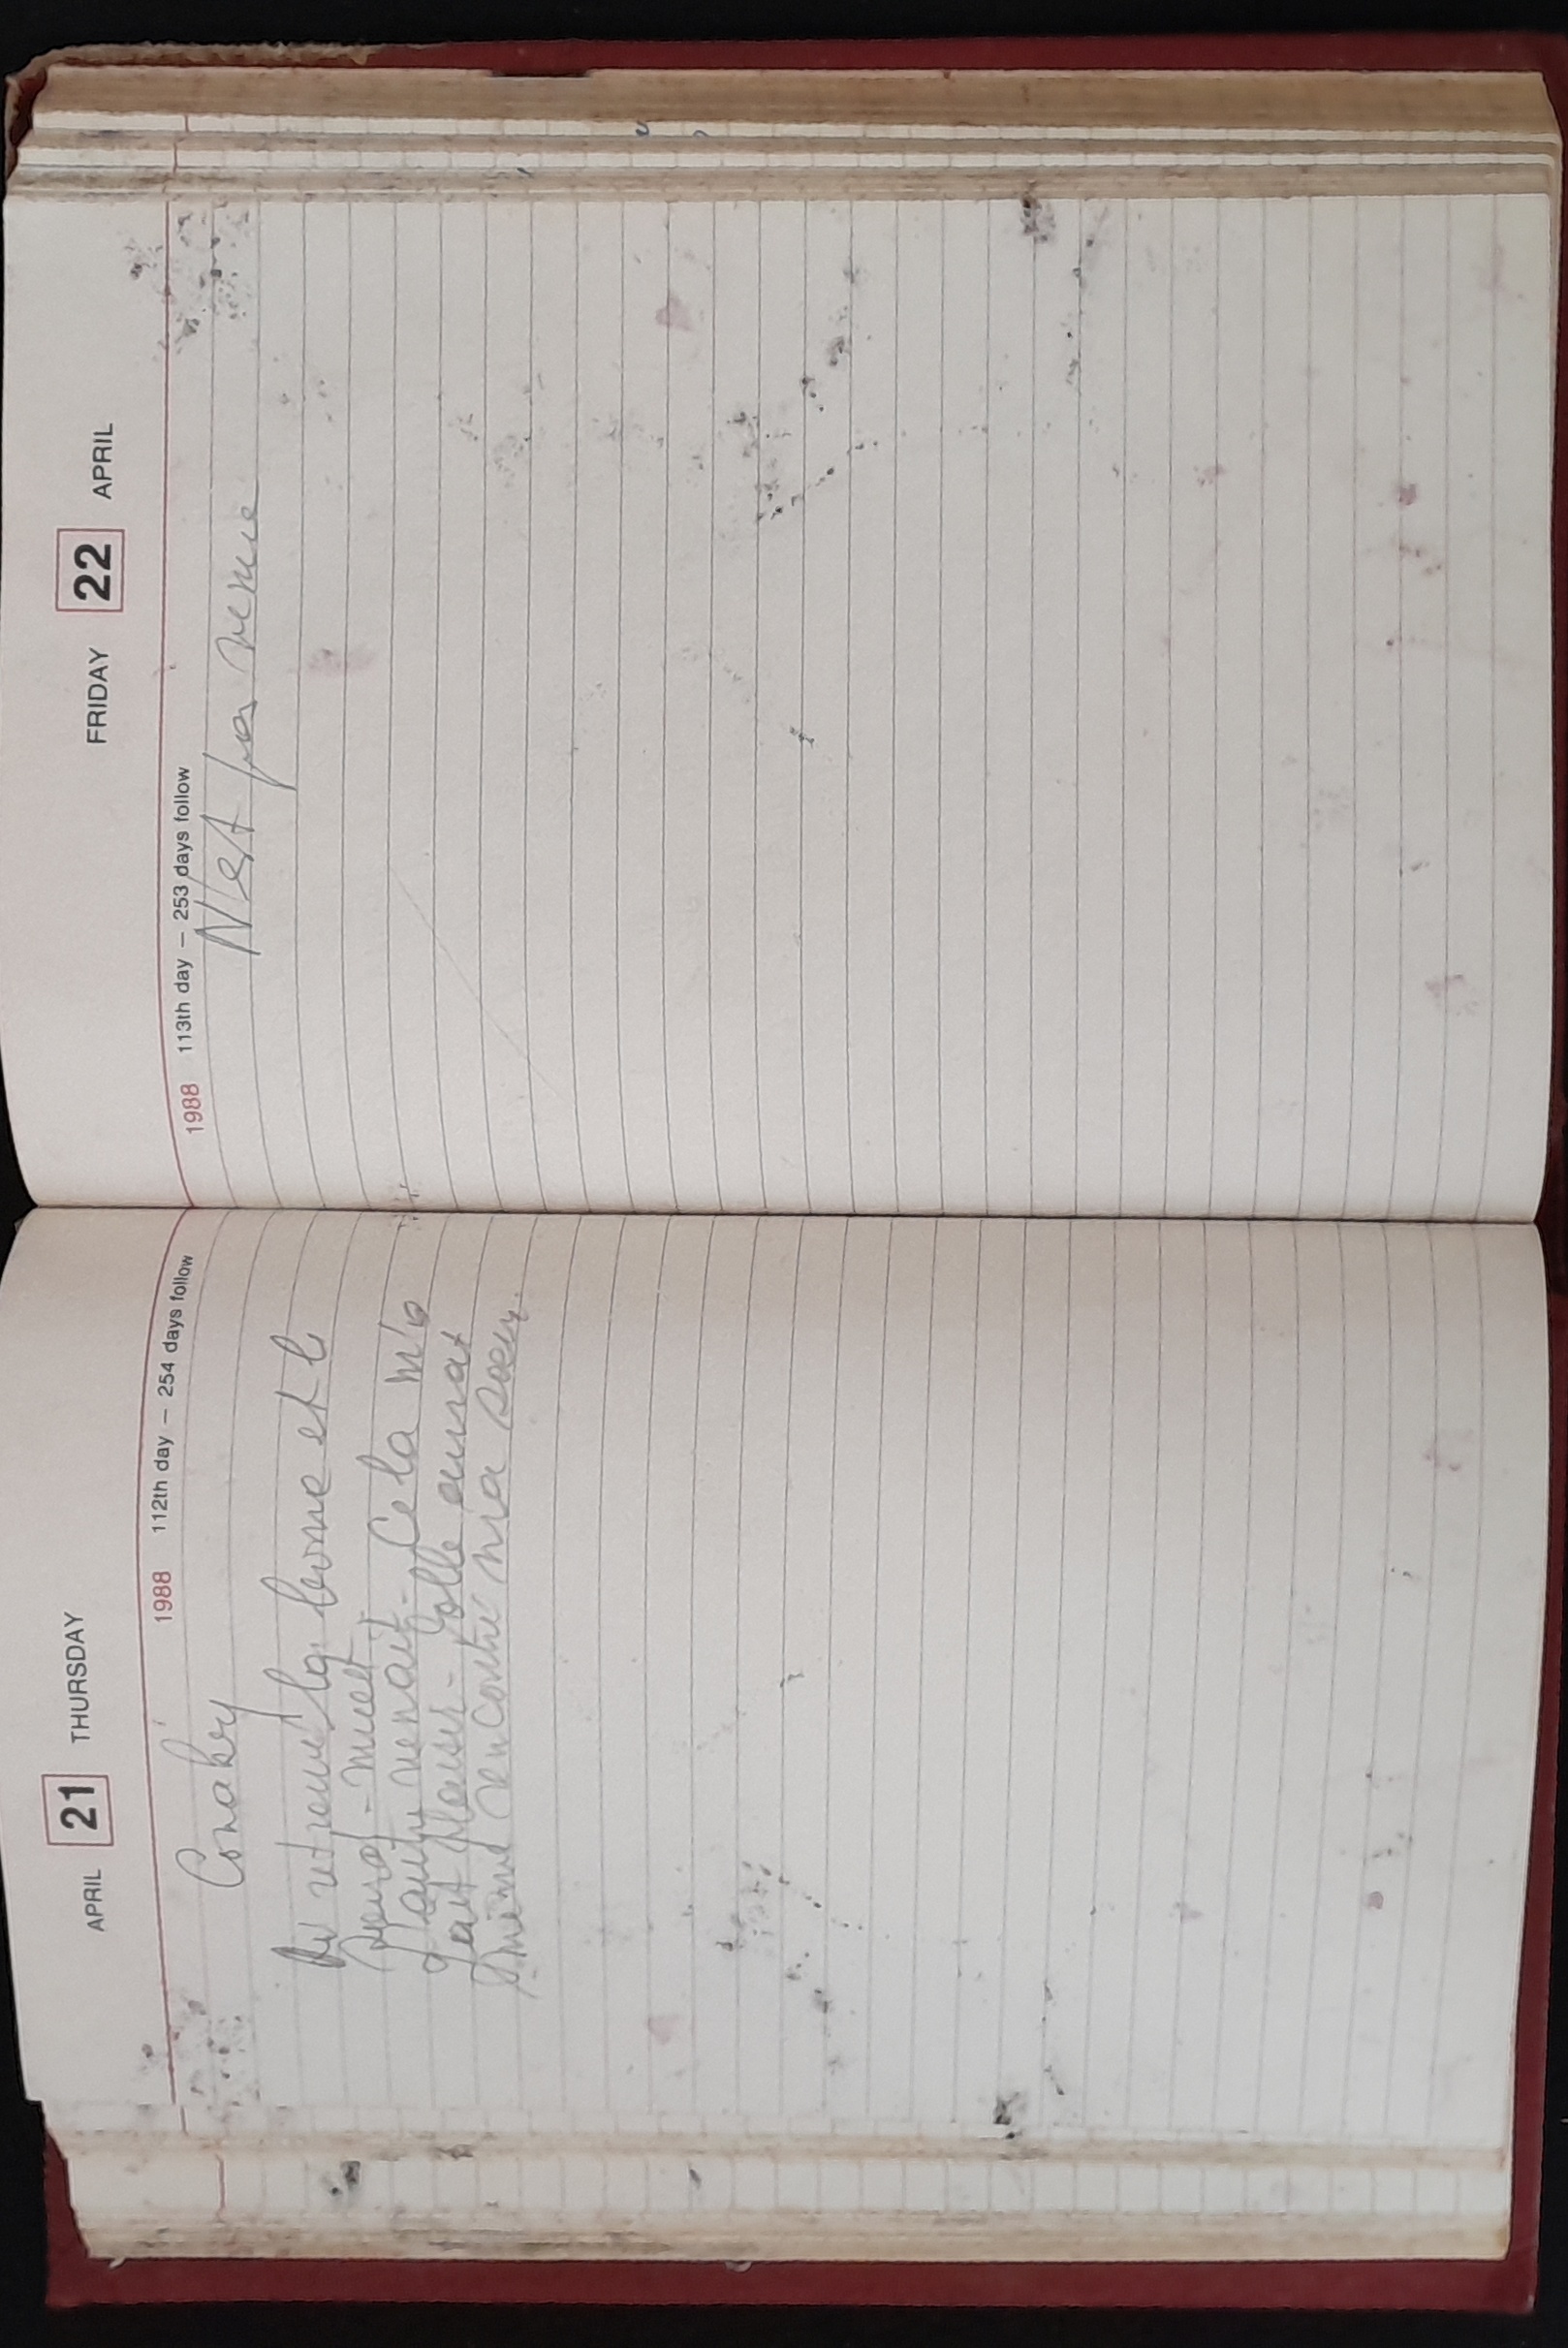 APRIL 21 THURSDAY
1988 112th day – 254 days follow
Conakry
Ai retrouvé la bonne et le
sourd-muet
venait. Cela m'a
fait plaisir. Colle aurait
même rencontré ma soeur.
FRIDAY 22 APRIL
1988 113th day – 253 days follow
N'est pas venue